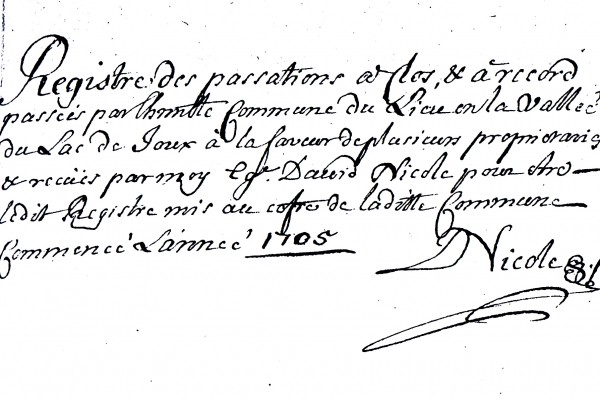 Registre des passations à Clos, & à record
passées par Lhonnble Commune du Lieu en la Vallée
du Lac de Joux à la faveur de plusieurs proprietaires
& recües par moy Eg. David Nicole pour etre
ledit Registre mis au cofre de laditte Commune
Commencé Lannee 1705
Nicole